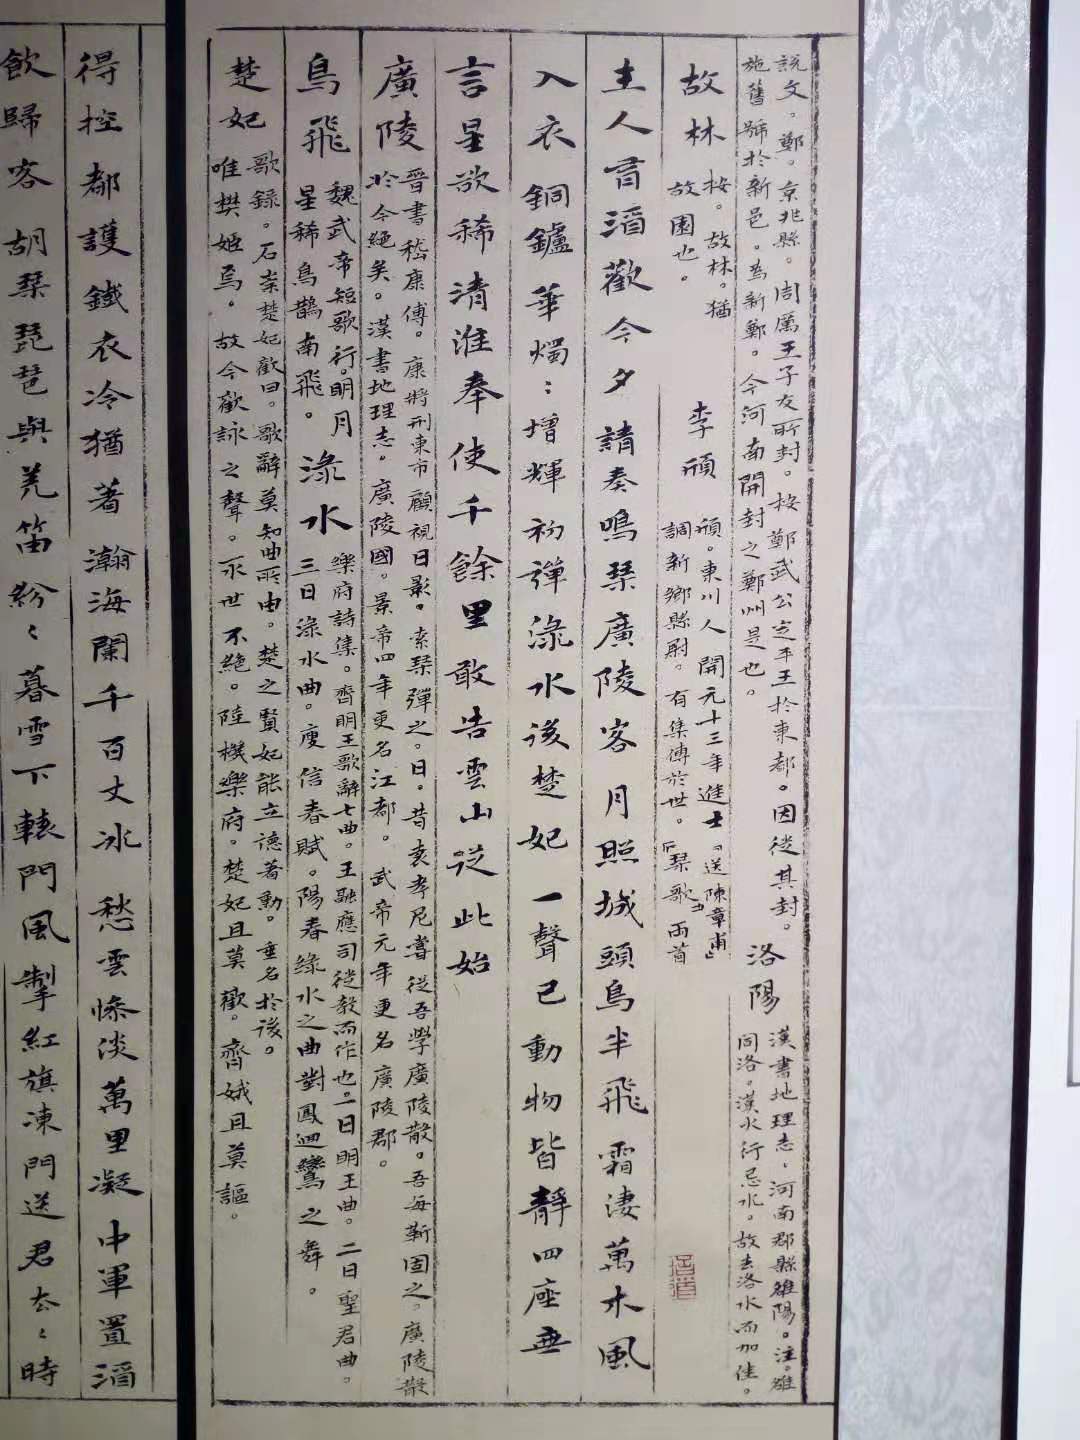 說文。鄭。京兆縣。周厲王子友所封。按鄭武公定平王於東都。因徙其封。
施舊號於新邑。為新鄭。今河南開封之鄭州是也。
洛陽
漢書地理志。河南郡縣雒陽。注。雒
同洛。漢火行忌水。故去洛水而加隹。
故林
按。故林。猶
故園也。
李頎
頎。東川人開元十三年進士『送陳章甫』
調新鄉縣尉。有集傳於世。『琴歌』兩首
主人有酒歡今夕請奏鳴琴廣陵客月照城頭烏半飛霜淒萬木風
入衣銅鑪華燭:增輝初彈淥水後楚妃一聲已動物皆靜四座無
言星欲稀清淮奉使千餘里敢告雲山從此始
廣陵
晉書嵇康傳。康將刑東市顧視日影。索琴彈之。曰。昔袁孝尼嘗從吾學廣陵散。吾每靳固之。廣陵散
於今絕矣。漢書地理志。廣陵國。景帝四年更名江都。武帝元年更名廣陵郡。
烏飛
魏武帝短歌行。明月
星稀烏鵲南飛。
淥水
樂府詩集。齊明王歌辭七曲。王融應司徒教而作也。一曰明王曲。二曰聖君曲。
三曰淥水曲。庾信春賦。陽春綠水之曲對鳳迴鸞之舞。
楚妃
歌錄。石崇楚妃歎曰。歌辭莫知曲所由。楚之賢妃能立德著勳。垂名於後。
唯樊姬焉。故今歎詠之聲。永世不絕。陸機樂府。楚妃且莫歎。齊娥且莫謳。
得控都護鐵衣冷猶著瀚海闌千百丈冰愁雲慘淡萬里凝中軍置酒
飲歸客胡琴琵琶與羌笛紛:暮雪下轅門風掣紅旗凍門送君去:時